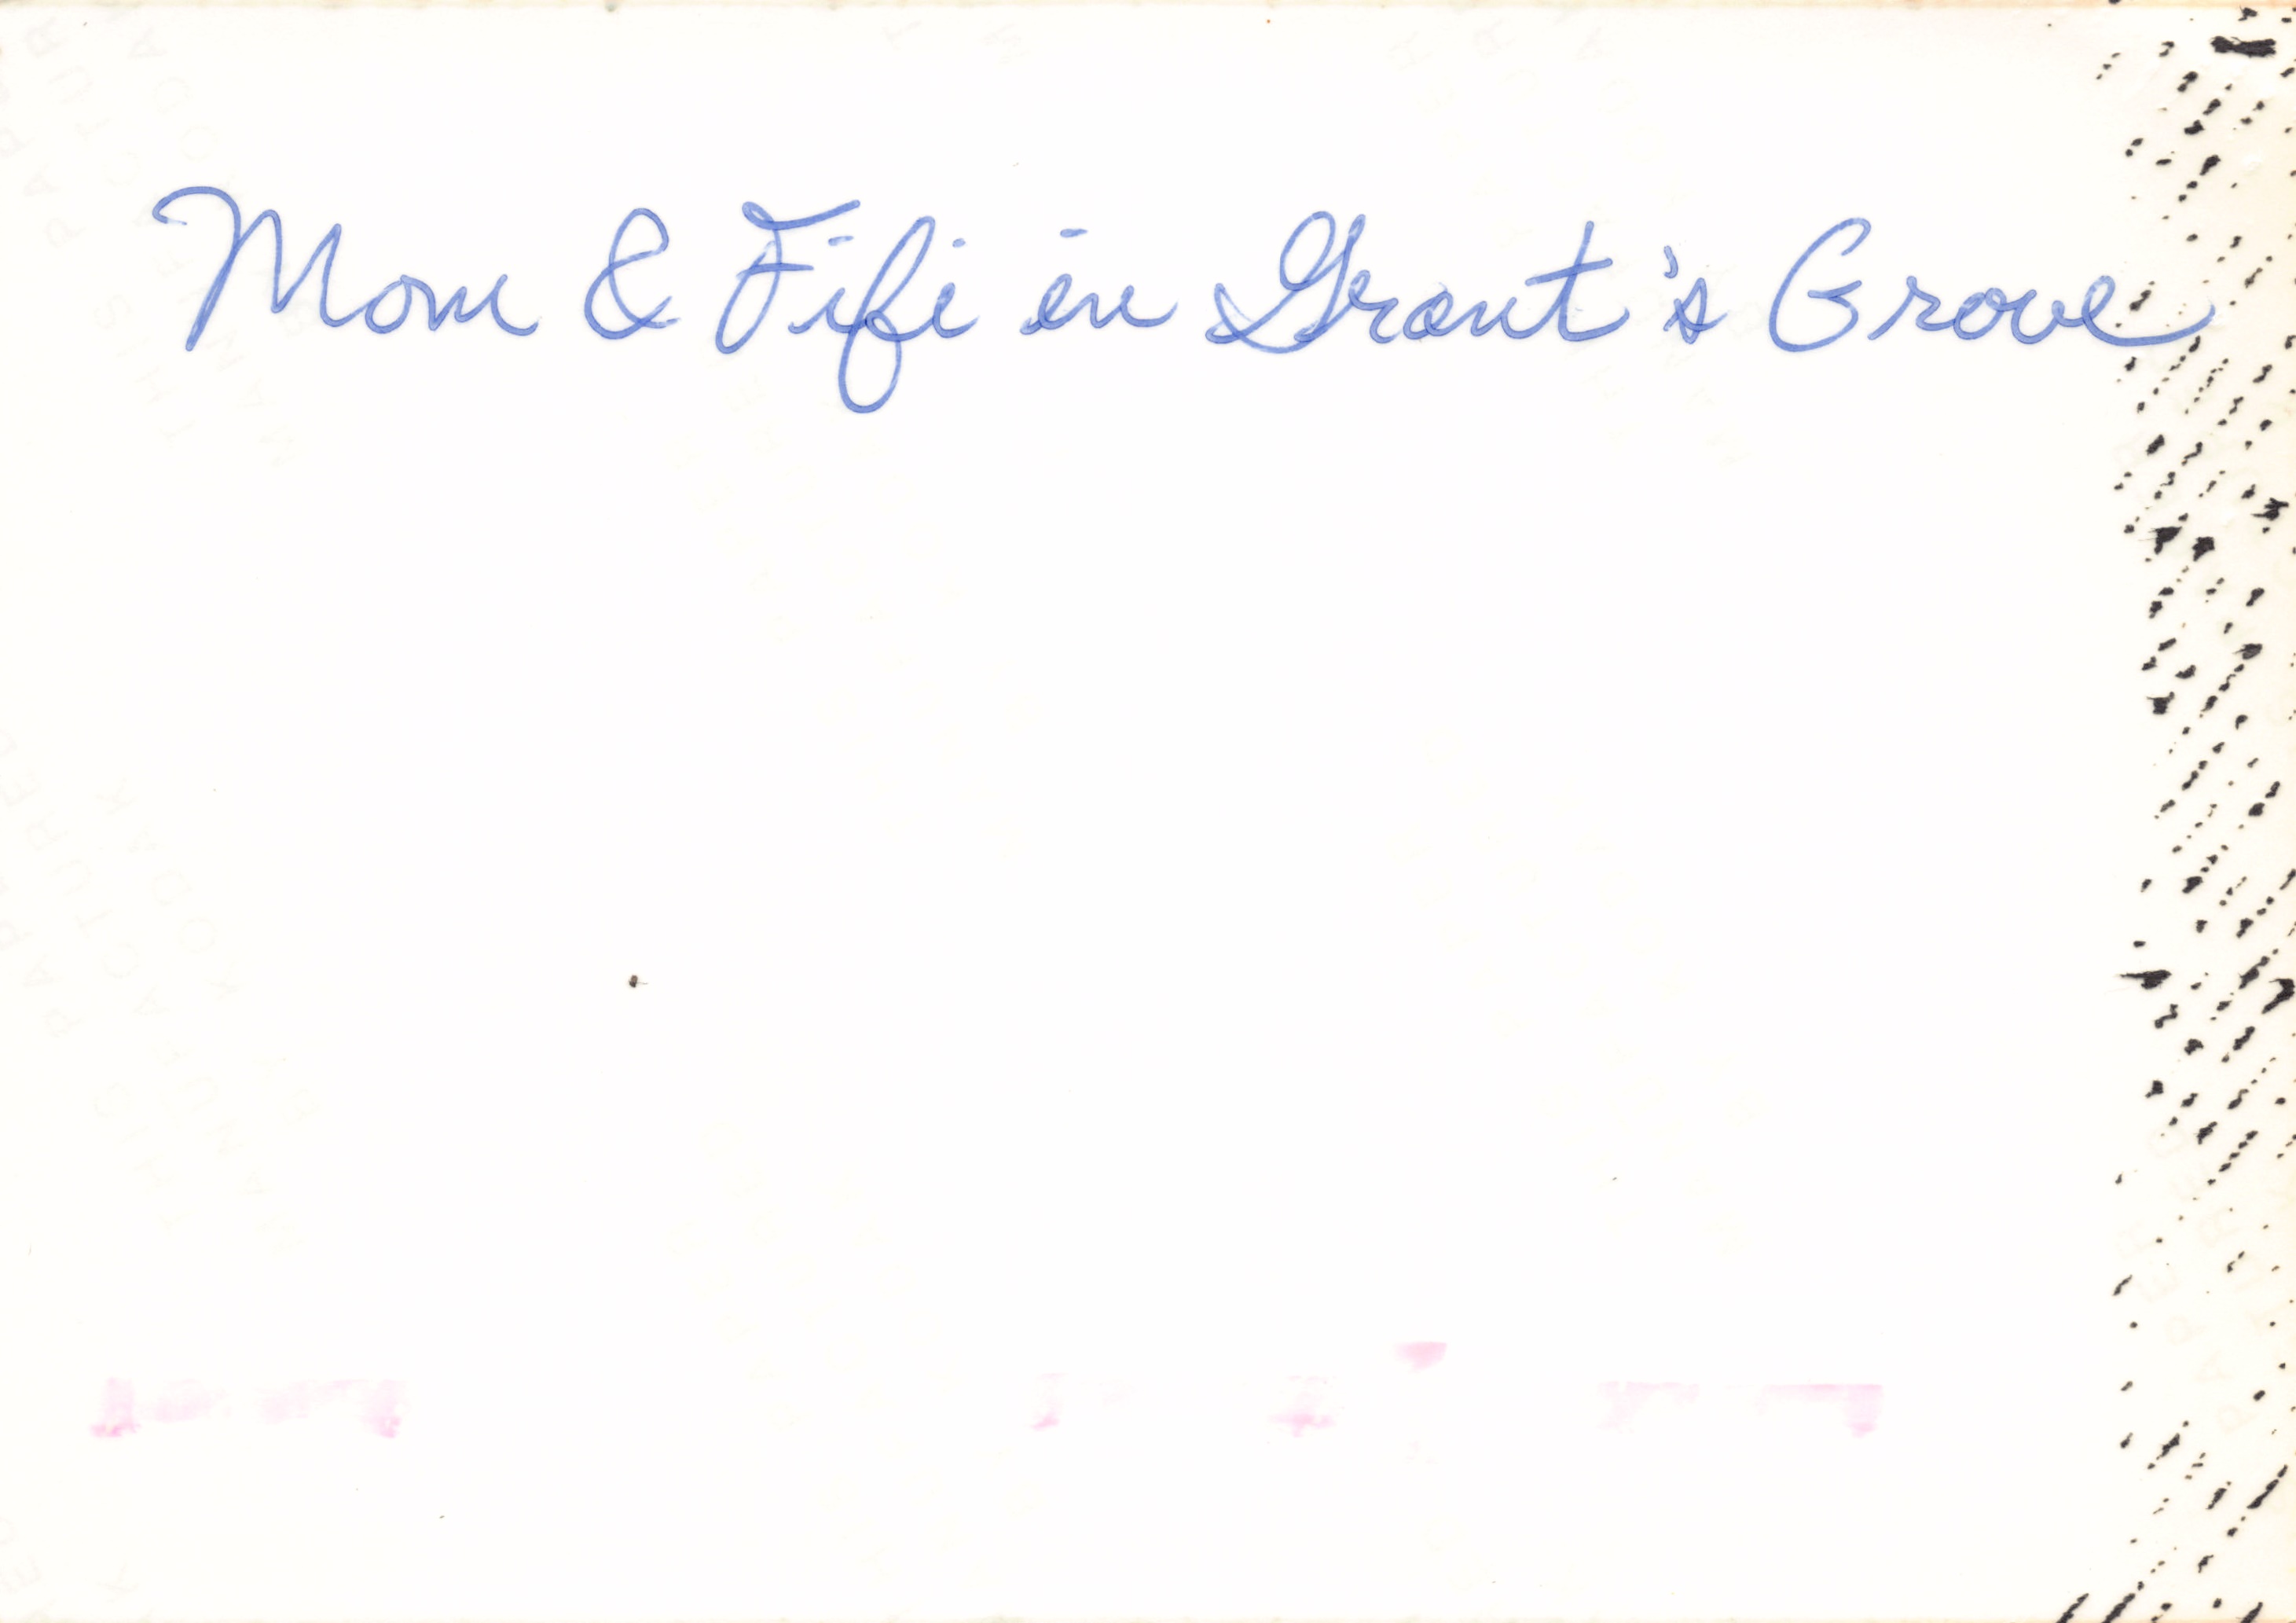 Mom & Fifi in Grant's Grove